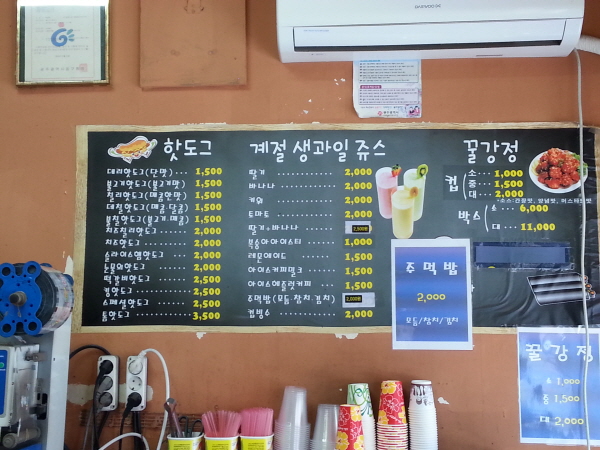 DAEWOO
핫도그
데리핫도그(단맛) 1,500
불고기핫도그(불고기맛) 1,500
칠리핫도그(매콤한맛) 1,500
데칠핫도그(매콤달콤) 1,500
불칠핫도그(불고기.매콤) 1,500
치즈칠리핫도그 2,000
치즈핫도그 2,000
슬라이스햄핫도그 2,000
눈꽃핫도그 2,000
떡갈비핫도그 2,500
킹핫도그 2,500
스페셜핫도그 2,500
톰핫도그 3,500
계절 생과일 쥬스
딸기 2,000
바나나 2,000
키위 2,000
토마토 2,000
딸기+바나나 2,500
복숭아아이스티 1,000
레몬에이드 1,500
아이스커피밀크 1,500
아이스헤즐럿커피 1,500
주먹밥(모듬.참치.김치) 2,000
컵빙수 2,000
꿀강정
컵 소 1,000
중 1,500
대 2,000
박스 소 6,000
대 11,000
주먹밥
2,000
모듬/참치/김치
꿀강정
소 1,000
중 1,500
대 2,000